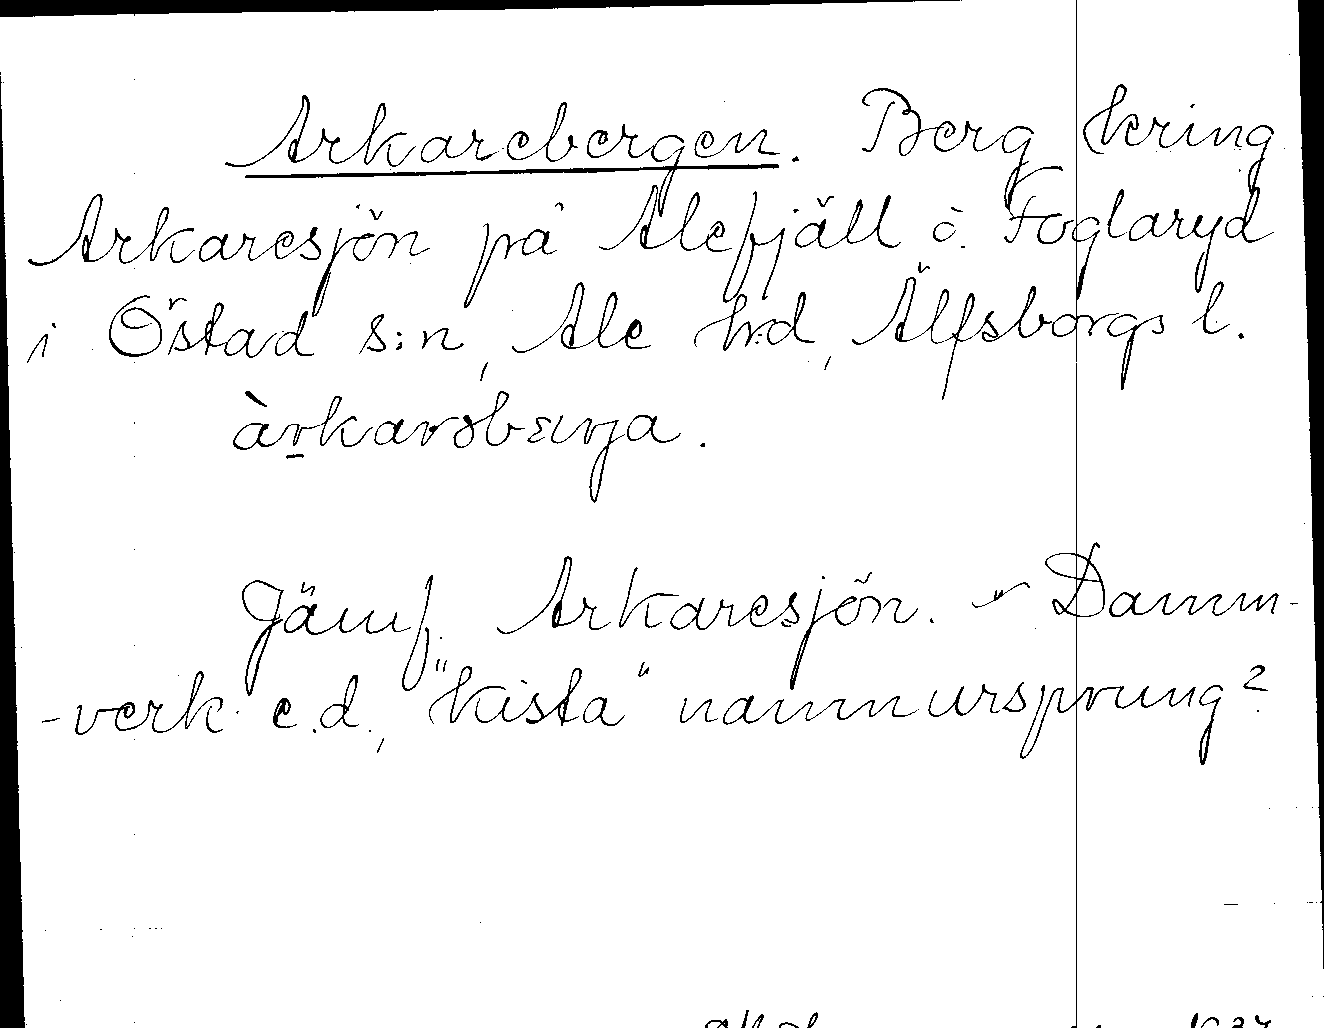 Arkarebergen. Berg kring
Arkaresjön på Alefjäll ö. Foglaryd
i Östad s:n, Ale h:d, Älfsborgs l.
Jämf. Arkaresjön. - Damm-
-verk e.d., "kista" namnursprung?